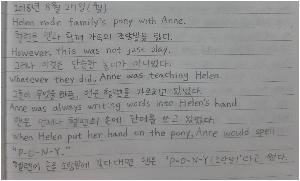 2018년 8월 27일(월)
Helen rode family's pony with Anne.
헬렌은 앤과 함께 가족의 조랑말을 탔다.
However, this was not just play.
그러나 이것은 단순한 놀이가 아니었다.
Whatever they did, Anne was teaching Helen.
그들이 무엇을 하든, 앤은 헬렌을 가르치고 있었다.
Anne was always writing words into Helen's hand
앤은 언제나 헬렌의 손에 단어를 쓰고 있었다.
When Helen put her hand on the pony, Anne would spell
"P-O-N-Y."
헬렌이 손을 조랑말에 갖다 대면 앤은 "P-O-N-Y(조랑말)"라고 썼다.